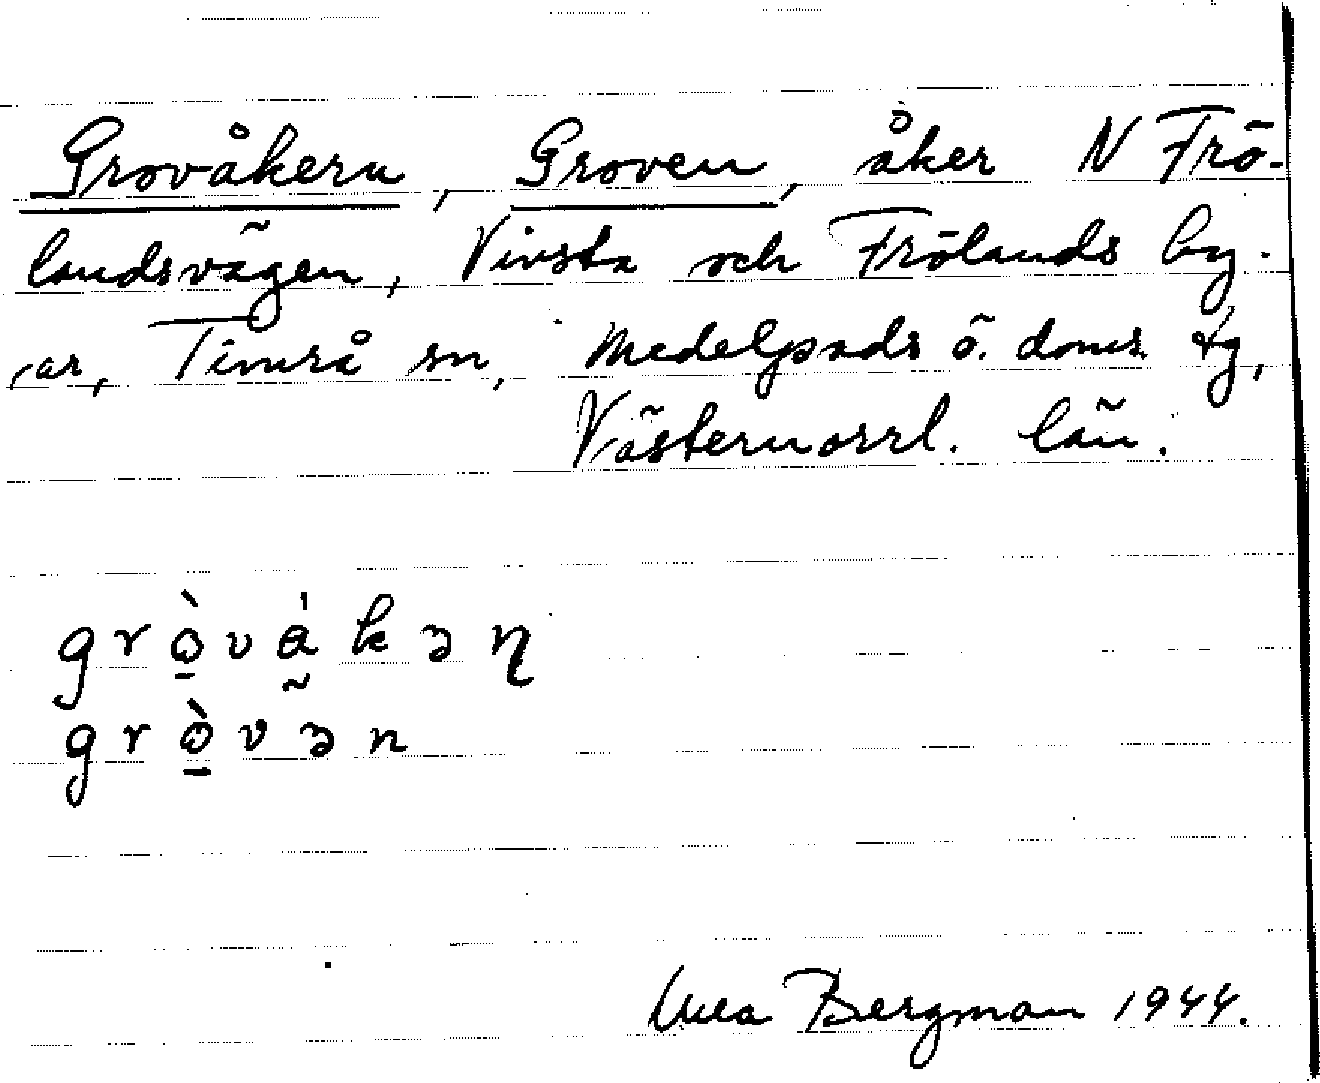 Grovåkern, Groven, åker N Frö-
landsvägen, Vivsta och Frölands by-
ar, Timrå sn, Medelpads ö. doms. tg,
Västernorrl. län.
grò̠vá̰kəɳ
grò̠vən
Bergman 1944.